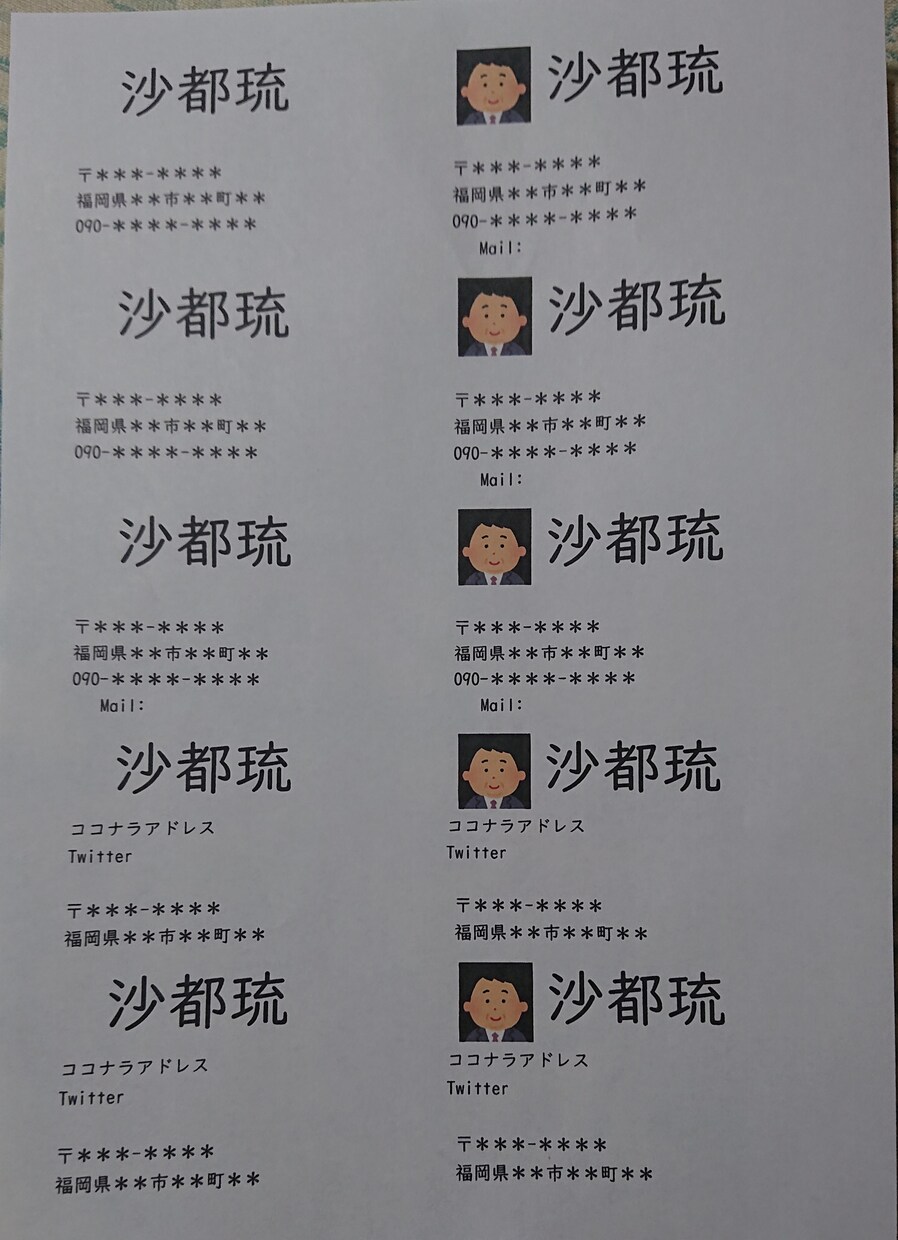 沙都琉
〒***-****
福岡県**市**町**
090-****-****
沙都琉
〒***-****
福岡県**市**町**
090-****-****
Mail:
沙都琉
〒***-****
福岡県**市**町**
090-****-****
沙都琉
〒***-****
福岡県**市**町**
090-****-****
Mail:
沙都琉
〒***-****
福岡県**市**町**
090-****-****
Mail:
沙都琉
〒***-****
福岡県**市**町**
090-****-****
Mail:
沙都琉
ココナラアドレス
Twitter
〒***-****
福岡県**市**町**
沙都琉
ココナラアドレス
Twitter
〒***-****
福岡県**市**町**
沙都琉
ココナラアドレス
Twitter
〒***-****
福岡県**市**町**
沙都琉
ココナラアドレス
Twitter
〒***-****
福岡県**市**町**